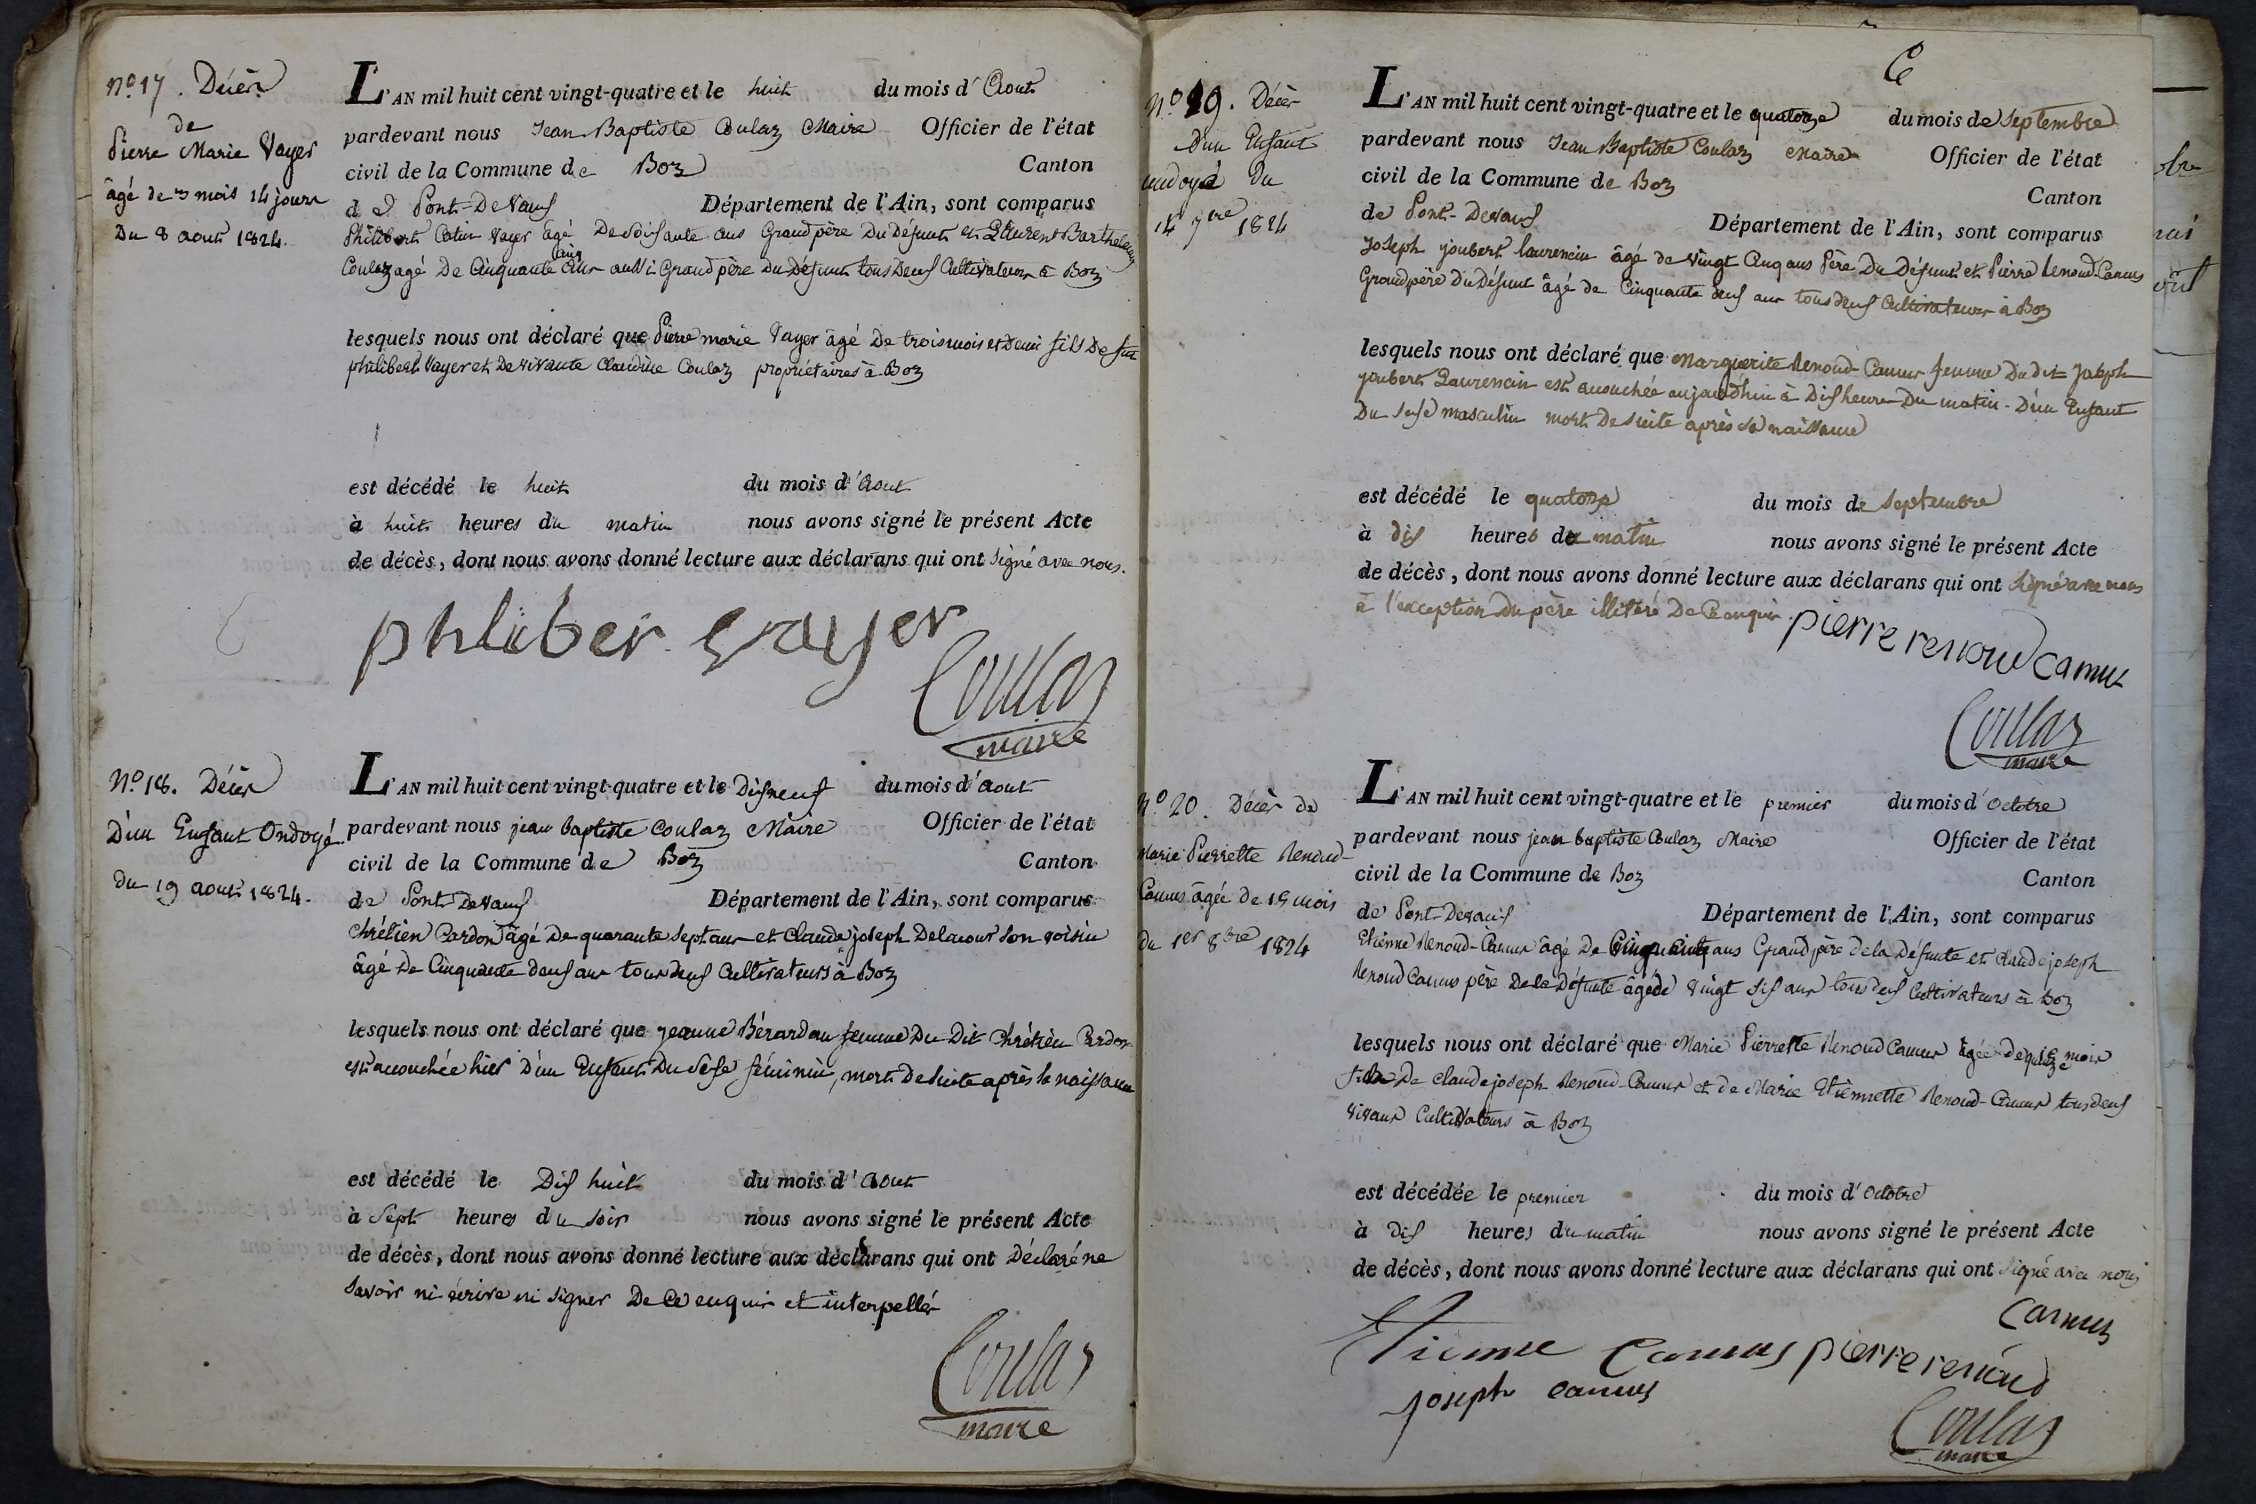 N.º 17. Décès
de
Pierre Marie Vayer
âgé de 3 mois 14 jours
Du 8 août 1824.
L'AN mil huit cent vingt-quatre et le huit du mois d'Aout
pardevant nous Jean Baptiste Coulaz Maire Officier de l'état
civil de la Commune de Boz Canton
de Pont-DeVaux Département de l'Ain, sont comparus
Philibert Catin Vayer âgé De soixante ans Grand père Du Défunt et Laurent Barthelemy
Coulaz agé De Cinquante Cinq ans aussi Grand père Du Défunt tous Deux Cultivateurs à Boz
lesquels nous ont déclaré que Pierre marie Vayer âgé De trois mois et Demi fils De feu
philibert Vayer et De vivante Claudine Coulaz propriétaires à Boz
est décédé le huit du mois d'Aout
à huit heures du matin nous avons signé le présent Acte
de décès, dont nous avons donné lecture aux déclarans qui ont signé avec nous.
phliber vayer
Coulaz
maire
N.º 18. Décès
D'un Enfant Ondoyé.
du 19 aout 1824.
L'AN mil huit cent vingt-quatre et le Dix neuf du mois d'Aout
pardevant nous jean baptiste Coulaz Maire Officier de l'état
civil de la Commune de Boz Canton
de Pont DeVaux Département de l'Ain, sont comparus
Chrétien Cardon âgé De quarante sept ans et Claude joseph Delacour son voisin
âgé De Cinquante deux ans tous deux Cultivateurs à Boz
lesquels nous ont déclaré que jeanne Bérardan femme Du Dit Chrétien Cardon
est accouchée hier D'un Enfant Du sexe féminin, mort De suite après sa naissance
est décédé le Dix huit du mois d'Aout
à sept heures du soir nous avons signé le présent Acte
de décès, dont nous avons donné lecture aux déclarans qui ont Déclaré ne
savoir ni écrire ni signer De ce enquis et interpellés
Coulaz
maire
N.º 19. Décès
D'un Enfant
ondoyé Du
14 7bre 1824
L'AN mil huit cent vingt-quatre et le quatorze du mois de Septembre
pardevant nous Jean Baptiste Coulaz Maire Officier de l'état
civil de la Commune de Boz Canton
de Pont-Devaux Département de l'Ain, sont comparus
Joseph joubert laurencin âgé de Vingt Cinq ans Père Du Défunt et Pierre Renoud-Camus
Grand père Du Défunt âgé de Cinquante deux ans tous deux Cultivateurs à Boz
lesquels nous ont déclaré que Marguerite Renoud-Camus femme Du dit Joseph
joubert Laurencin est accouchée aujourdhui à Dix heures Du matin D'un Enfant
Du Sexe masculin mort De suite après sa naissance
est décédé le quatorze du mois de Septembre
à dix heures du matin nous avons signé le présent Acte
de décès, dont nous avons donné lecture aux déclarans qui ont signé avec nous
à l'exception Du père illitéré De Ce enquis
pierre renoud camus
Coulaz
maire
N.º 20. Décès de
Marie Pierrette Renoud-
Camus âgée de 15 mois
du 1er 8bre 1824
L'AN mil huit cent vingt-quatre et le premier du mois d'Octobre
pardevant nous jean baptiste Coulaz Maire Officier de l'état
civil de la Commune de Boz Canton
de Pont-Devaux Département de l'Ain, sont comparus
Etienne Renoud-Camus âgé De ans Grand père De la Défunte et Claude joseph
Renoud Camus père De la Défunte âgé de Vingt six ans tous deux Cultivateurs à Boz
lesquels nous ont déclaré que Marie Pierrette Renoud Camus âgée De quinze mois
fille De Claude joseph Renoud-Camus et de Marie Etiennette Renoud-Camus tous deux
vivans Cultivateurs à Boz
est décédée le premier du mois d'Octobre
à dix heures du matin nous avons signé le présent Acte
de décès, dont nous avons donné lecture aux déclarans qui ont signé avec nous
Camus
Etienne Camus pierre renoud
joseph camus
Coulaz
maire